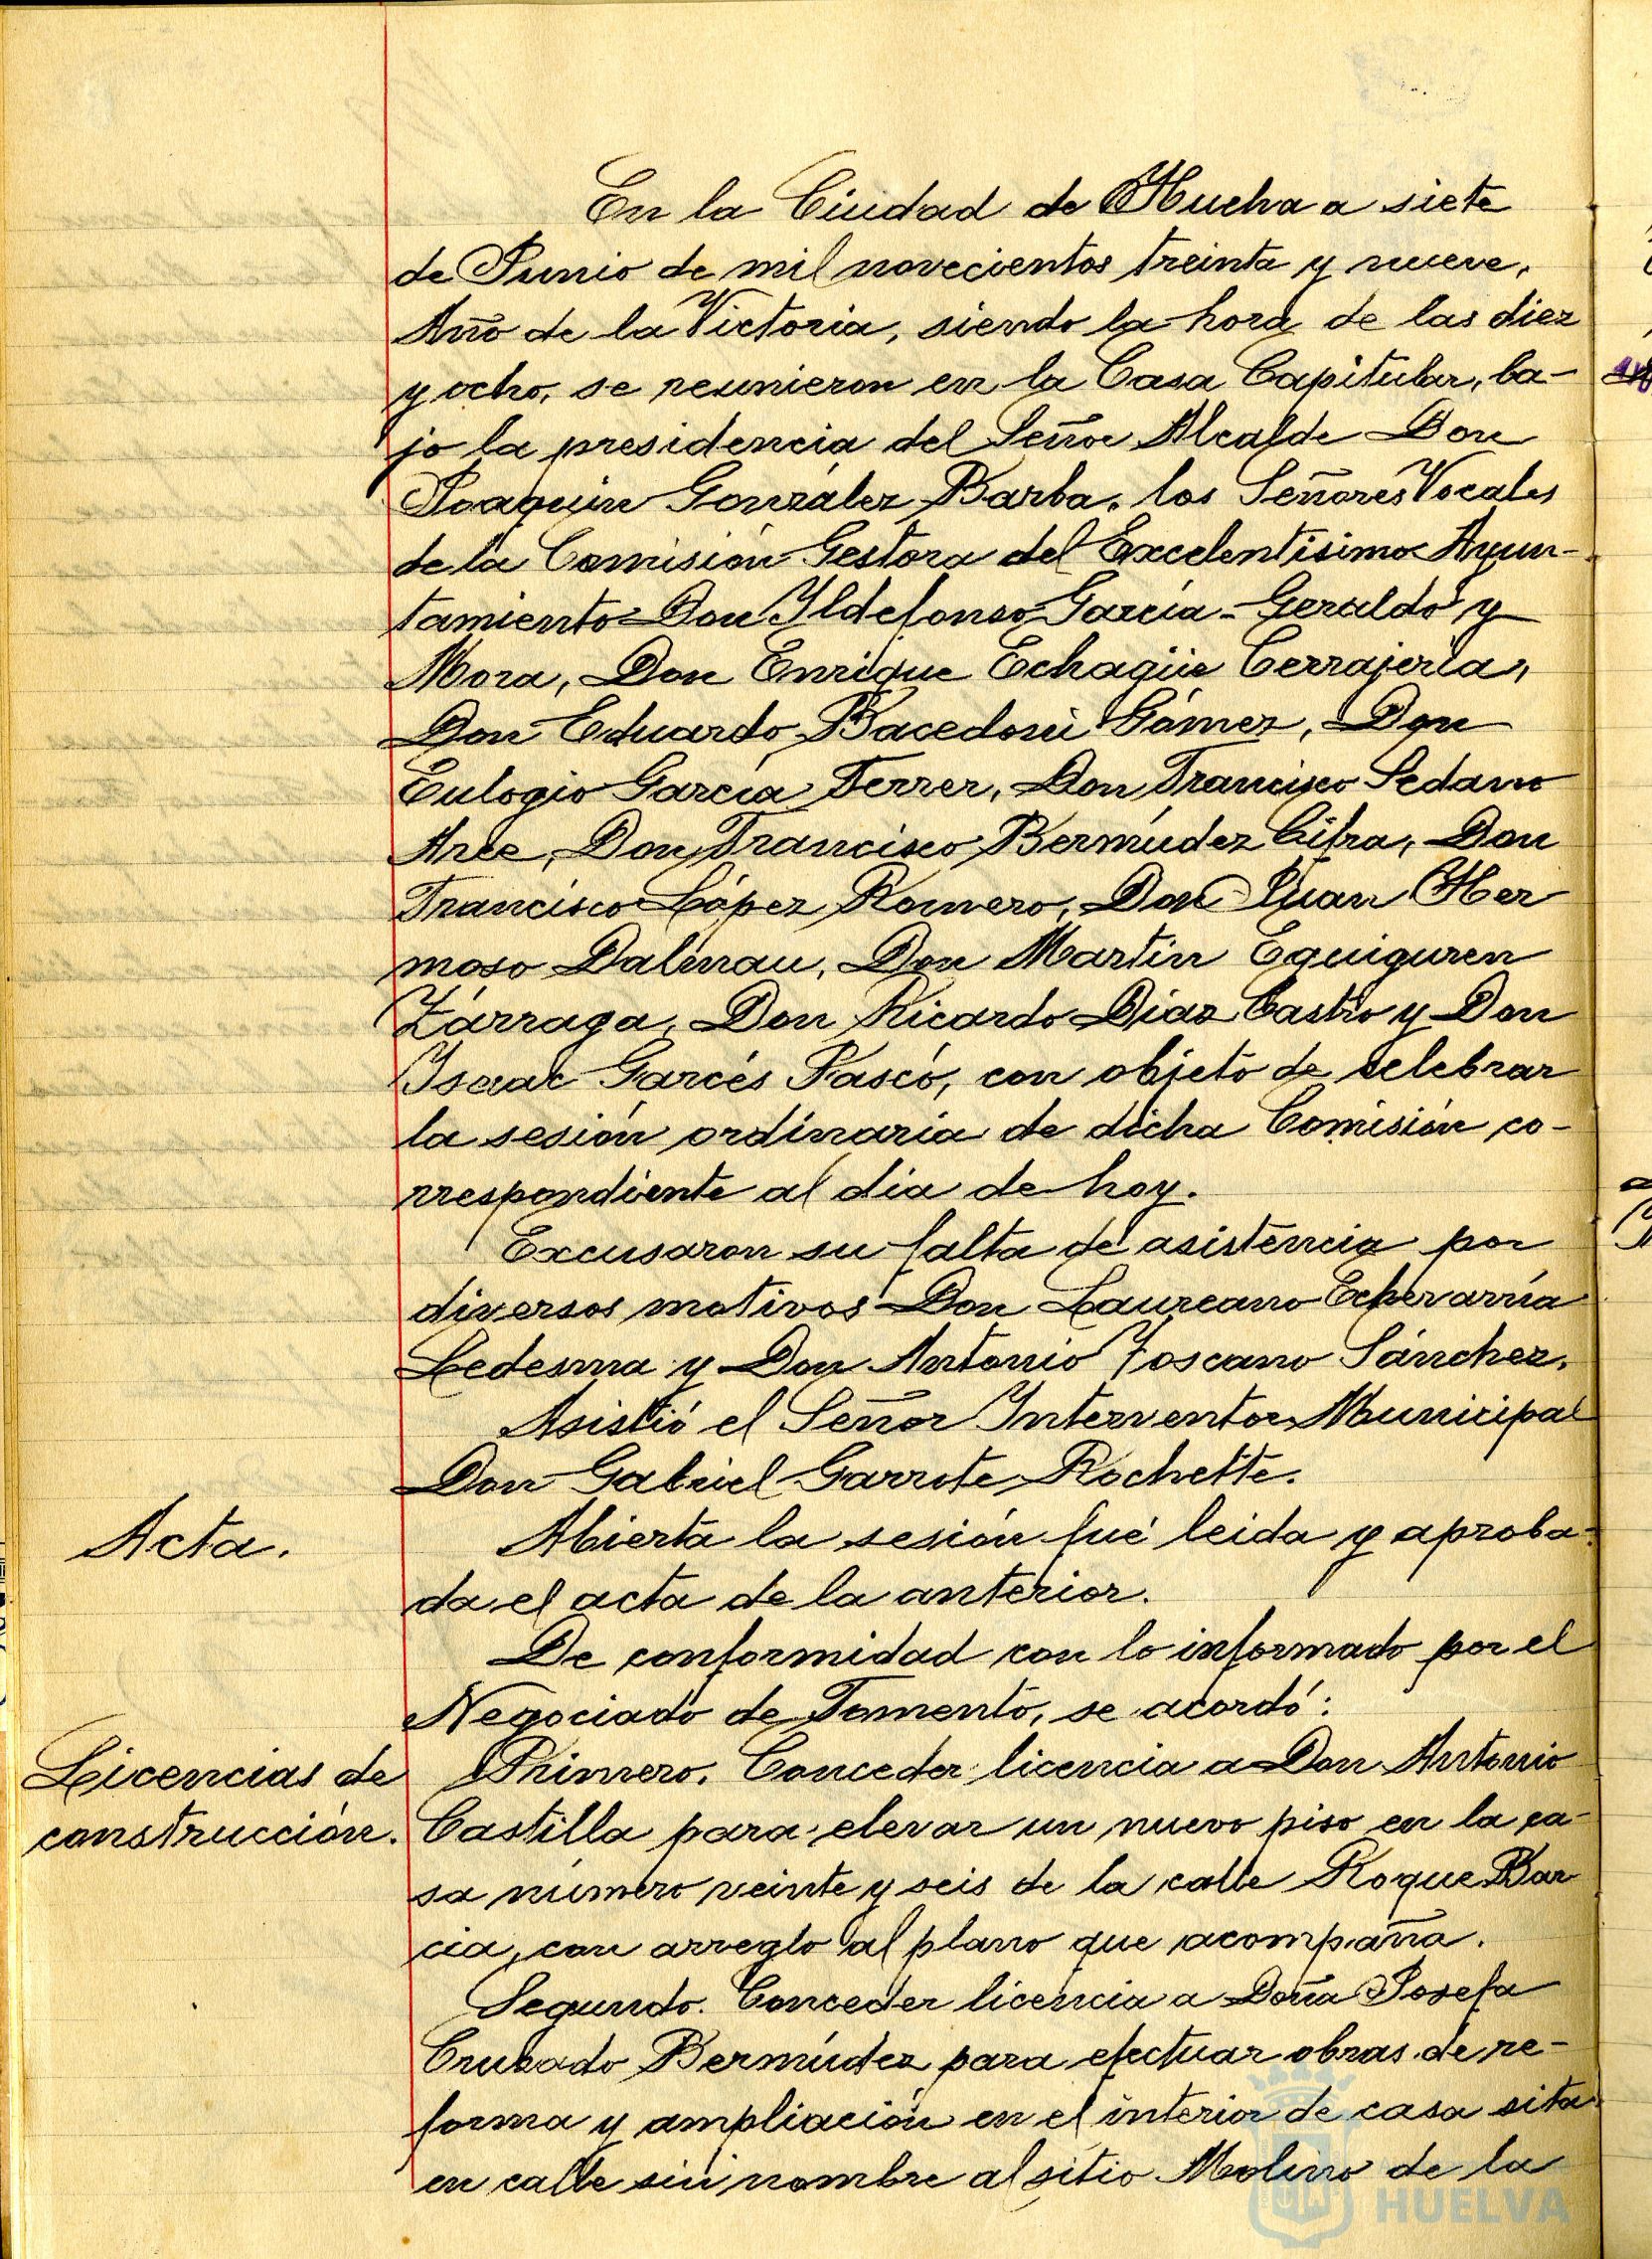 En la Ciudad de Huelva a siete
de Junio de mil novecientos treinta y nueve,
Año de la Victoria, siendo la hora de las diez
y ocho, se reunieron en la Casa Capitular, ba-
jo la presidencia del Señor Alcalde Don
Joaquin González Barba, los Señores Vocales
de la Comisión Gestora del Excelentísimo Ayun-
tamiento Don Yldefonso García-Geraldo y
Mora, Don Enrique Echagüe Cerrajería,
Don Eduardo Bacedoni Gómez, Don
Eulogio García Ferrer, Don Francisco Sedano
Arce, Don Francisco Bermúdez Cifra, Don
Francisco López Romero, Don Juan Her
moso Dalmau, Don Martín Eguiguren
Zárraga, Don Ricardo Díaz Castro y Don
Ysaac Garcés Pascó, con objeto de celebrar
la sesión ordinaria de dicha Comisión co-
rrespondiente al dia de hoy.
Excusaron su falta de asistencia por
diversos motivos Don Laureano Echevarría
Ledesma y Don Antonio Toscano Sánchez.
Asistió el Señor Interventor Municipal
Don Gabriel Garrote Rochette.
Acta.
Abierta la sesión fué leida y aproba-
da el acta de la anterior.
De conformidad con lo informado por el
Negociado de Fomento, se acordó:
Licencias de
construcción.
Primero. Conceder licencia a Don Antonio
Castilla para elevar un nuevo piso en la ca-
sa número veinte y seis de la calle Roque Bar
cia, con arreglo al plano que acompaña.
Segundo. Conceder licencia a Doña Josefa
Cruzado Bermúdez para efectuar obras de re-
forma y ampliación en el interior de casa sita
en calle sin nombre al sitio Molino de la
HUELVA